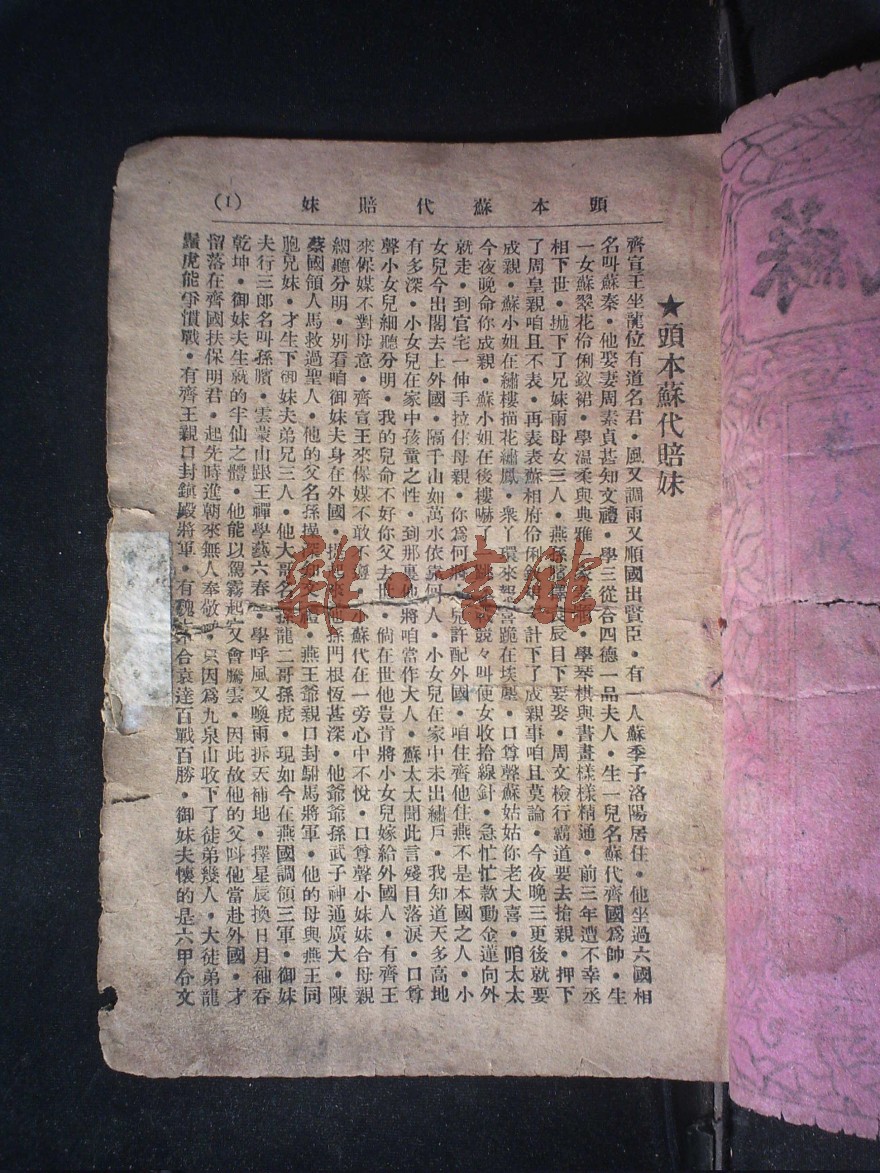 頭本蘇代賠妹 (1)
★頭本蘇代賠妹
齊宣王坐龍位有道名君•風又調雨又順國出賢臣•有一人蘇季子洛陽居住•他坐過六國相
名叫蘇秦•他娶妻周素貞甚知文禮•學三從合四德一品夫人•生一兒名蘇代齊國爲帥•生
一女蘇翠花伶俐釵裙•學温柔與典雅 學琴棋與書畫樣樣精通•前三年遭不幸丞
相下世•抛下了兄妹兩母女三人•燕孫臏擇 辰日下要娶•周文檢行霸道要去搶親•押下
了周皇親咱且不表•再表表蘇相府伶俐釵 計下了成親事咱且莫論•今夜晚三更後就要
成親•蘇小姐在繡樓描花繡鳳•衆丫環來報喜跪在埃塵•口尊聲蘇姑姑你老大喜•咱太太
今夜晚命你成親•蘇小姐在後樓嚇了 戰兢兢叫使女收拾線針•急忙忙款動金蓮向外
就走•到官宅一伸手拉住母親•你爲何將 兒許配外國•咱住齊他住燕不是本國之人•小
女兒今出閣去上外國•隔千山如萬水依靠何人•小女兒在家中未出繡戶•我知道天多高地
有多深•小女兒在家中孩童之性•到那裏他將咱當作大人•蘇太太聞此言殘目落淚•口尊
聲小女兒細聽分明•我的兒命不好你父去世•倘在世他豈肯將小女兒嫁給外國人•有齊王
來保媒不對母意•齊宣王來保媒不敢不遵 小蘇代在一旁心中不悅•口尊聲小妹妹合母親
細聽分明•別看咱御妹夫身在外國•提起來他孫門根恆甚深•他爺爺孫武子神通廣大•陳
蔡國領人馬救過聖人•他的父名孫操深知文禮•燕王爺親口封駙馬將軍•他的母與燕王同
胞兄妹•才生下御妹夫弟兄三人•他大哥名孫龍二哥孫虎•現如今在燕國調領三軍•御妹
夫行三郎名叫孫臏•雲蒙山跟王禪學藝六春•學呼風又喚雨拆天補地•擇星辰換日月袖吞
乾坤•御妹夫生就的半仙之體•他能以駕霧起 又會騰雲•因此故他的父叫他當赴外國•才
留落在齊國扶保明君•起先時進朝來無人奉敬 只因爲九泉山收下了徒弟幾人•大徒弟龍
鬚虎能爭慣戰•有齊王親口封鎮殿將軍•有魏 合袁達百戰百勝•御妹夫懷的是六甲合文
雜•書館
蘇